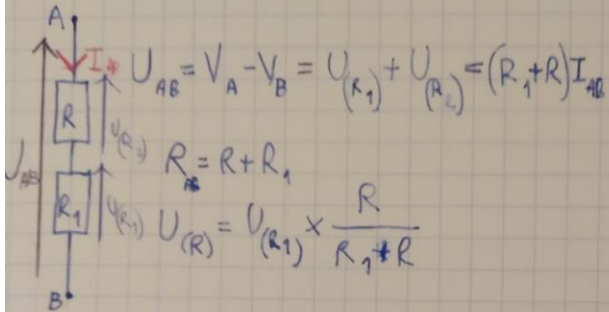 A
I
U_AB = V_A - V_B = U_(R_1) + U_(R_2) = (R_1 + R) I_AB
R
U_(R_1)
R_AB = R + R_1
R_1
U_(R_1)
U_(R) = U_(R_1) × R / (R_1 + R)
B